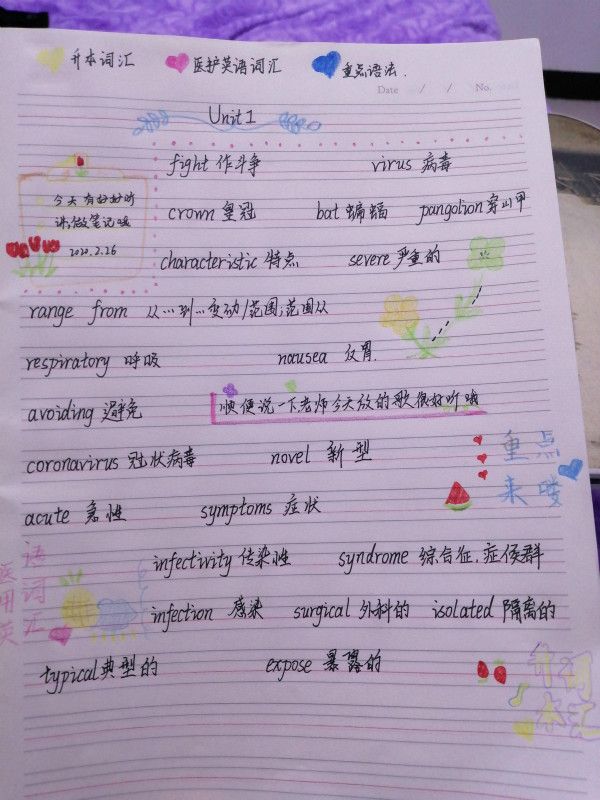 升本词汇 医护英语词汇 重点语法.
Date / / No.
Unit 1
fight 作斗争 virus 病毒
今天有好好听
课,做笔记哦
2020.2.26
crown 皇冠 bat 蝙蝠 pangolion 穿山甲
characteristic 特点 severe 严重的
range from 从…到…变动/范围;范围从
respiratory 呼吸 nausea 反胃.
avoiding 避免 顺便说一下老师今天放的歌很好听哦
coronavirus 冠状病毒 novel 新型
重点
来喽
acute 急性 symptoms 症状
infectivity 传染性 syndrome 综合征,症候群
医用英
语词汇
infection 感染 surgical 外科的 isolated 隔离的
typical 典型的 expose 暴露的
升本
词汇